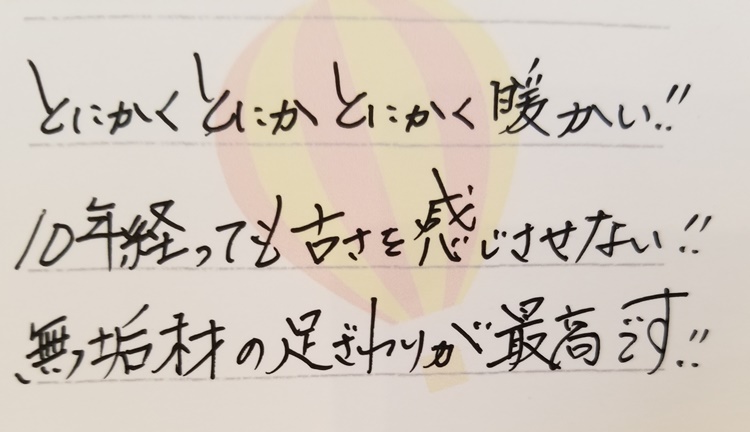 とにかくとにかとにかく暖かい!!
10年経っても古さを感じさせない!!
無垢材の足ざわりが最高です!!